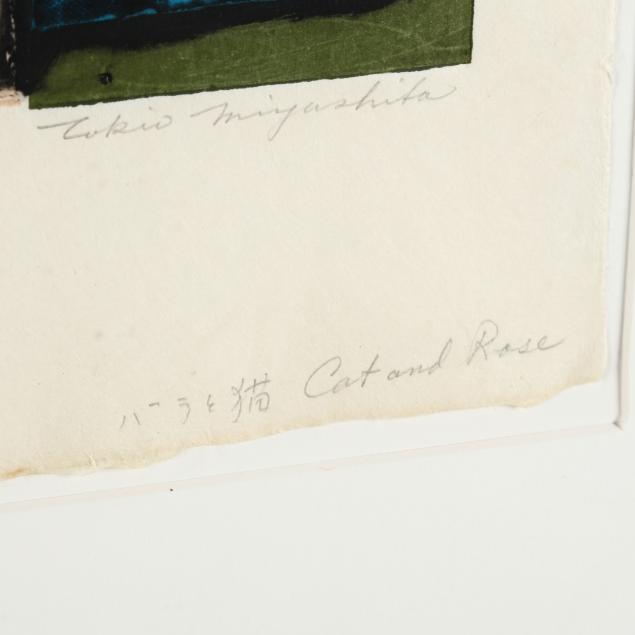 Tokio Miyashita
バラと猫 Cat and Rose